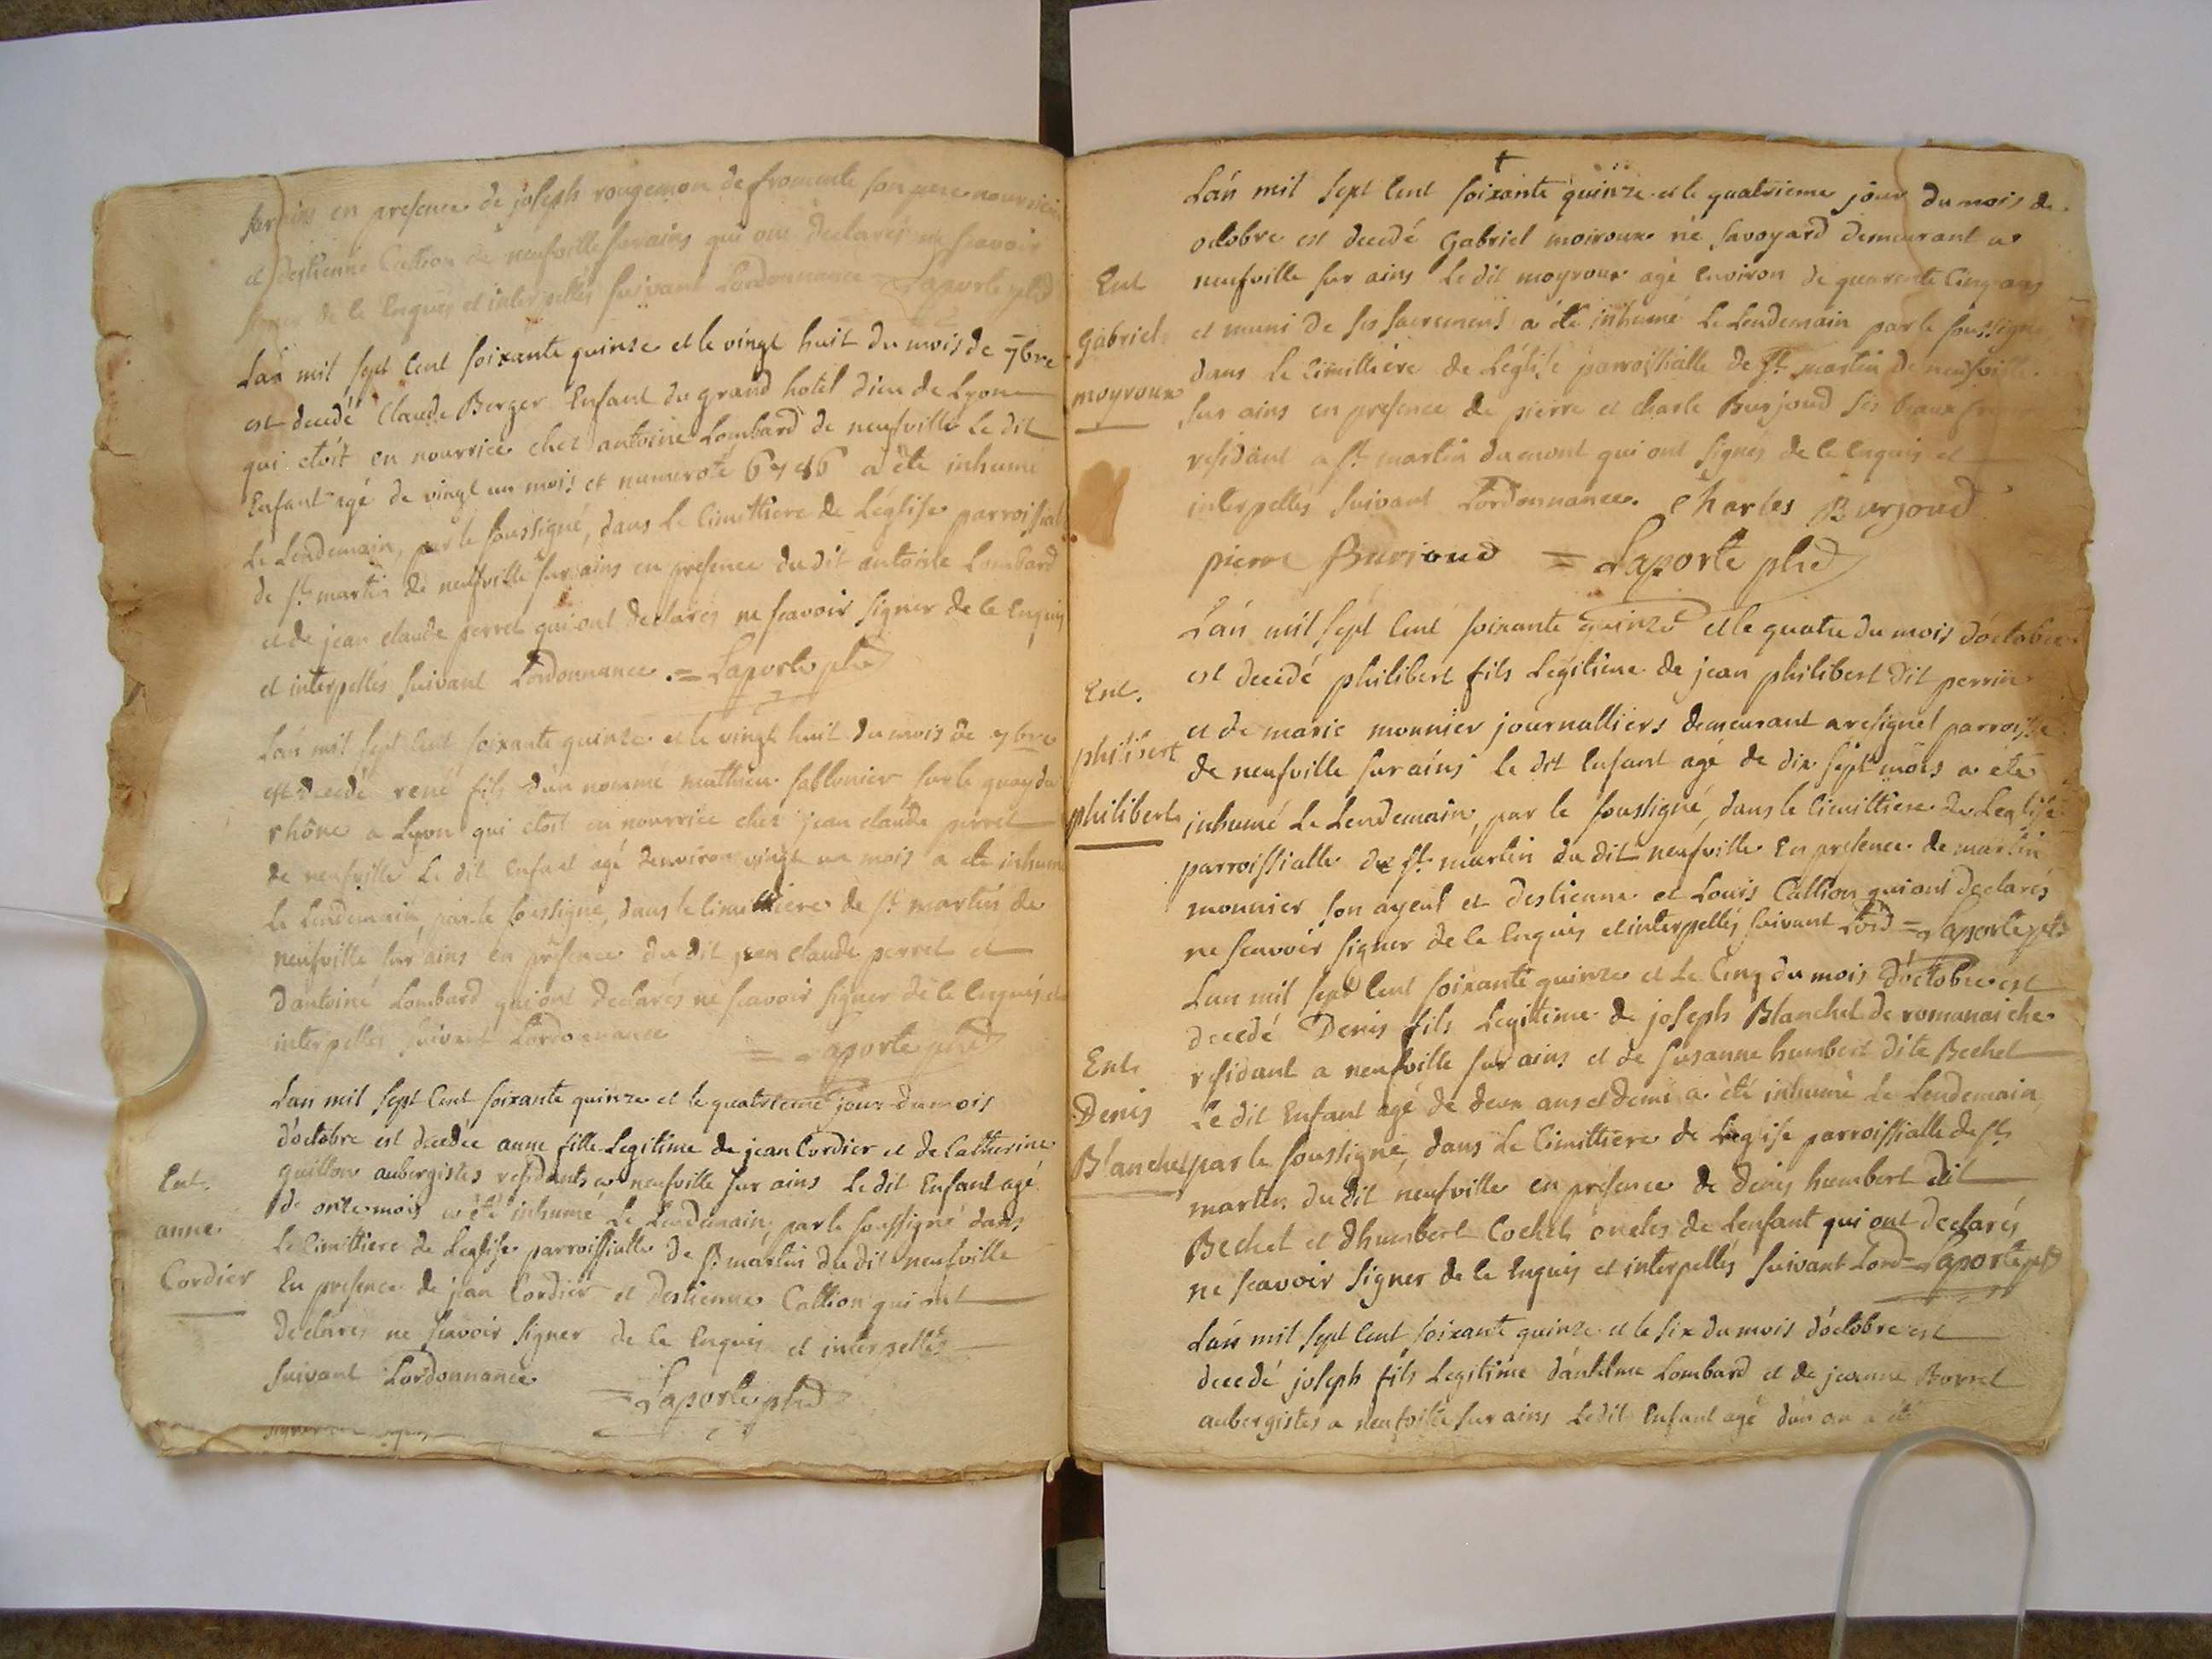 sur ains en presence de joseph rougemon de fromente son pere nourricier
et destienne Cattion de neufville sur ains qui ont declarés ne scavoir
signer de ce enquis et interpellés suivant Lordonnance Laporte ptre
Lan mil sept cent soixante quinze et le vingt huit du mois de 7bre
est decedé Claude Berger Enfant du grand hotel dieu de Lyon
qui etoit en nourrice chez antoine Lombard de neufville Le dit
Enfant agé de vingt un mois et numeroté 6786 a été inhumé
Le Lendemain, par le soussigné, dans le Cimittiere de Léglise parroissial
de st martin de neufville sur ains en presence du dit antoine Lombard
et de jean claude perret qui ont declarés ne scavoir signer de ce Enquis
et interpellés suivant Lordonnance. = Laporte ptre
Lan mil sept cent soixante quinze et le vingt huit du mois de 7bre
est decedé rené fils d'un nommé mathieu sablonier sur le quay du
rhône a Lyon qui étoit en nourrice chez jean claude perret
de neufville Le dit Enfant agé denviron vingt un mois a eté inhumé
le Lendemain, par le soussigné, dans le Cimittiere de st martin de
neufville sur ains en presence du dit jean claude perret et
dantoine Lombard qui ont declarés ne scavoir signer de ce enquis et
interpellés suivant Lordonnance = Laporte ptre
Lan mil sept Cent soixante quinze et le quatrieme jour du mois
d'octobre est decedée anne fille Legitime de jean Cordier et de Catherine
Ent. guillon aubergistes residants a neufville sur ains Le dit Enfant agé
de onze mois a été inhumé Le Lendemain, par le soussigné dans
anne Le Cimittiere de Leglise parroissialle de st martin du dit neufville
Cordier En presence de jean Cordier et destienne Cattion qui ont
declarés ne scavoir signer de ce enquis et interpellés
suivant Lordonnance = Laporte ptre
Lan mil sept Cent soixante quinze et le quatrieme jour du mois de
octobre est decedé Gabriel moiroux né savoyard demeurant a
Ent neufville sur ains Le dit moyroux agé Environ de quarente Cinq ans
Gabriel et muni de ses sacremens a été inhumé Le Lendemain par le soussigné
dans le Cimittiere de Léglise parroissialle de st martin de neufville
moyroux sur ains en presence de pierre et charle Burjoud ses beaux freres
residant a st martin du mont qui ont signés de ce enquis et
interpellés suivant Lordonnance. Charles Burjoud
pierre Burjoud = Laporte ptre
Lan mil sept Cent soixante quinze et le quatre du mois doctobre
est decedé philibert fils Legitime de jean philibert dit perrin
Ent. et de marie monnier journalliers demeurant a resignel parroisse
philibert de neufville sur ains Le dit Enfant agé de dix sept mois a eté
philibert inhumé Le Lendemain, par le soussigné, dans le Cimittiere de Leglise
parroissialle de st martin du dit neufville En presence de martin
monnier son ayeul et destienne et Louis Cattion qui ont declarés
ne scavoir signer de ce enquis et interpellés suivant Lord = Laporte ptre
Lan mil sept Cent soixante quinze et Le Cinq du mois d'octobre est
decedé Denis fils Legitime de joseph Blanchet de romanaiche
Ent. residant a neufville sur ains et de susanne humbert dite Bechet
Denis Le dit Enfant agé de deux ans et demi a été inhumé Le Lendemain,
Blanchet par le soussigné, dans Le Cimittiere de Leglise parroissialle de st
martin du dit neufville en presence de denis humbert dit
Bechet et dhumbert Cochet oncles de Lenfant qui ont declarés
ne scavoir signer de ce enquis et interpellés suivant Lord = Laporte ptre
Lan mil sept Cent soixante quinze et le six du mois d'octobre est
decedé joseph fils Legitime dantelme Lombard et de jeanne Borret
aubergistes a neufville sur ains Le dit Enfant agé dun an a été